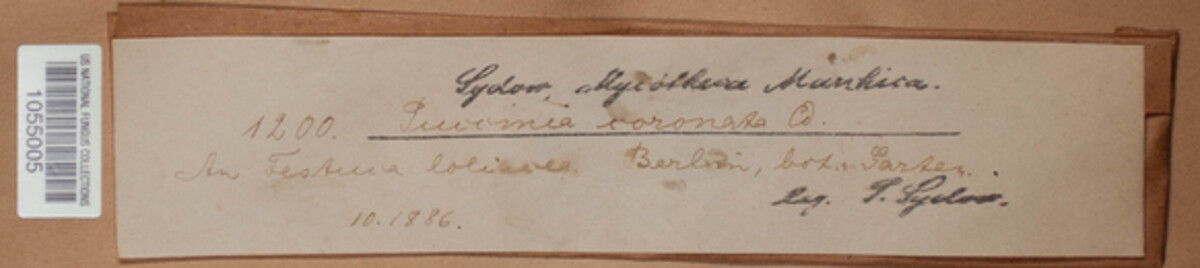 Sydow, Mycotheca Marchica.
1200. Puccinia coronata Cd.
An Festuca loliacea. Berlin, bot. Garten.
Leg. P. Sydow.
10.1886.
US NATIONAL FUNGUS COLLECTIONS
1055005